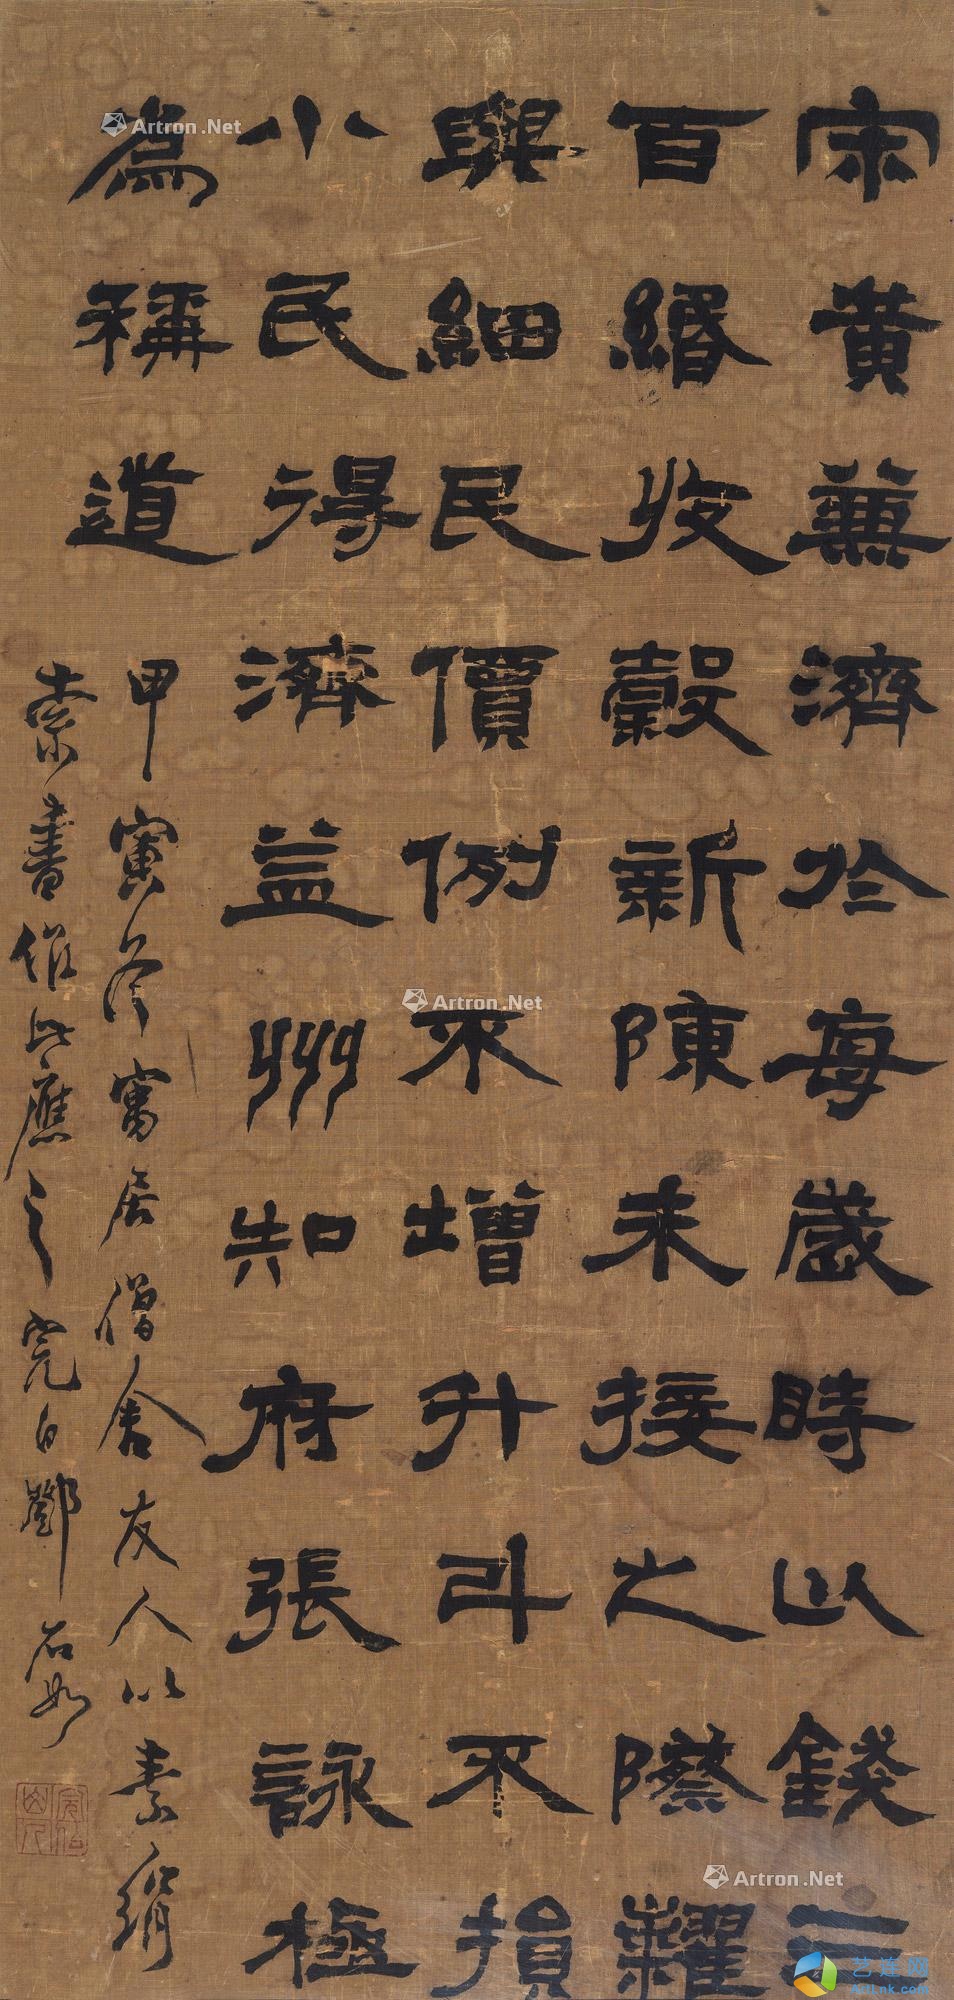 宋黄兼濟於每歲時以錢三
百緡收穀新陳未接之際糶
與細民價例不增升斗不損
小民得濟益州知府張詠極
為稱道
甲寅冬寓居僧舍友人以素絹
索書作此應之完白鄧石如
Artron.Net
Artron.Net
Artron.Net